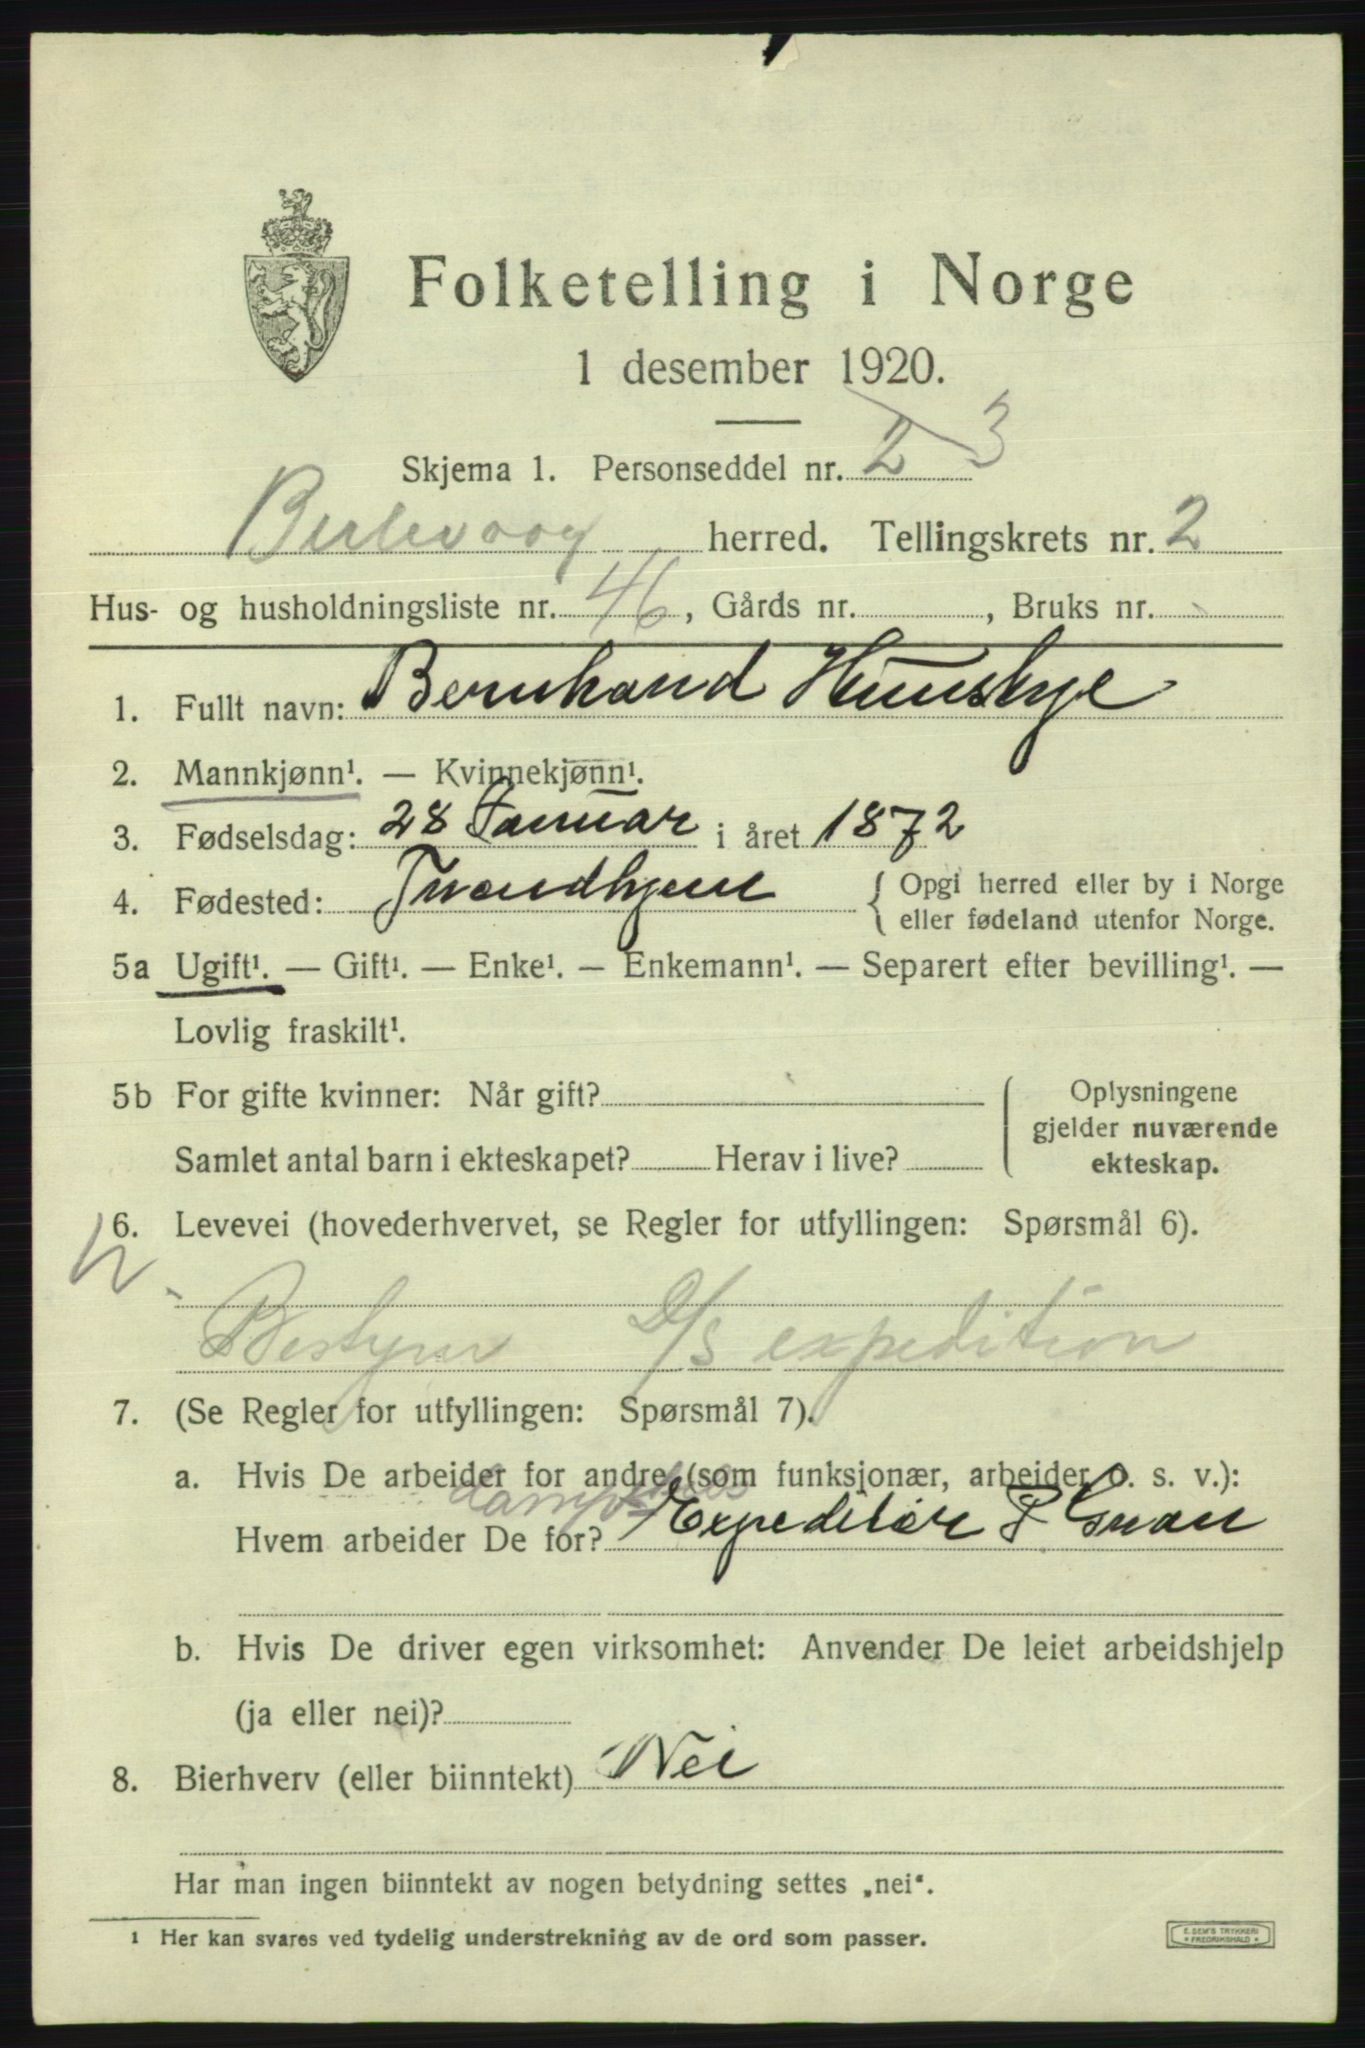 Folketelling i Norge
1 desember 1920.
Skjema 1. Personseddel nr. 2 3
Berlevaag herred. Tellingskrets nr. 2
Hus- og husholdningsliste nr. 46, Gårds nr. , Bruks nr.
1. Fullt navn: Bernhard
2. Mannkjønn¹. — Kvinnekjønn¹.
3. Fødselsdag: 28 Januar i året 1872
4. Fødested: Trondhjem { Opgi herred eller by i Norge
eller fødeland utenfor Norge.
5a Ugift¹. — Gift¹. — Enke¹. — Enkemann¹. — Separert efter bevilling¹. —
Lovlig fraskilt¹.
5b For gifte kvinner: Når gift? Oplysningene
gjelder nuværende
Samlet antal barn i ekteskapet? Herav i live? ekteskap.
6. Levevei (hovederhvervet, se Regler for utfyllingen: Spørsmål 6).
Bestyrer D/S expedition
7. (Se Regler for utfyllingen: Spørsmål 7).
a. Hvis De arbeider for andre (som funksjonær, arbeider o. s. v.):
dampskibs
Hvem arbeider De for? Expeditør P
b. Hvis De driver egen virksomhet: Anvender De leiet arbeidshjelp
(ja eller nei)?
8. Bierhverv (eller biinntekt) Nei
Har man ingen biinntekt av nogen betydning settes „nei“.
1 Her kan svares ved tydelig understrekning av de ord som passer.
E. SEM'S TRYKKERI
FREDRIKSHALD